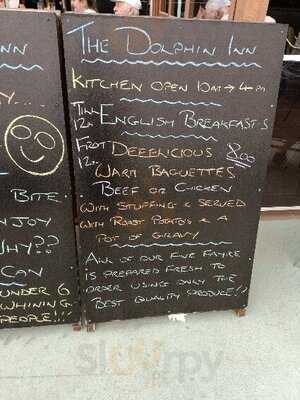 INN
Y...
BITE.
NJOY
WHY??
CAN
UNDER 6
WHINING
PEOPLE!!
THE DOLPHIN INN
KITCHEN OPEN 10AM → 4PM
TIL 12. ENGLISH BREAKFASTS
FROT 12.. DEEELICIOUS 8.00
WARM BAGUETTES
BEEF OR CHICKEN
WITH STUFFING & SERVED
WITH ROAST POTATO'S & A
POT OF GRAVY
ALL OF OUR FINE FAYRE
IS PREPARED FRESH TO
ORDER USING ONLY THE
BEST QUALITY PRODUCE!!
sluurpy